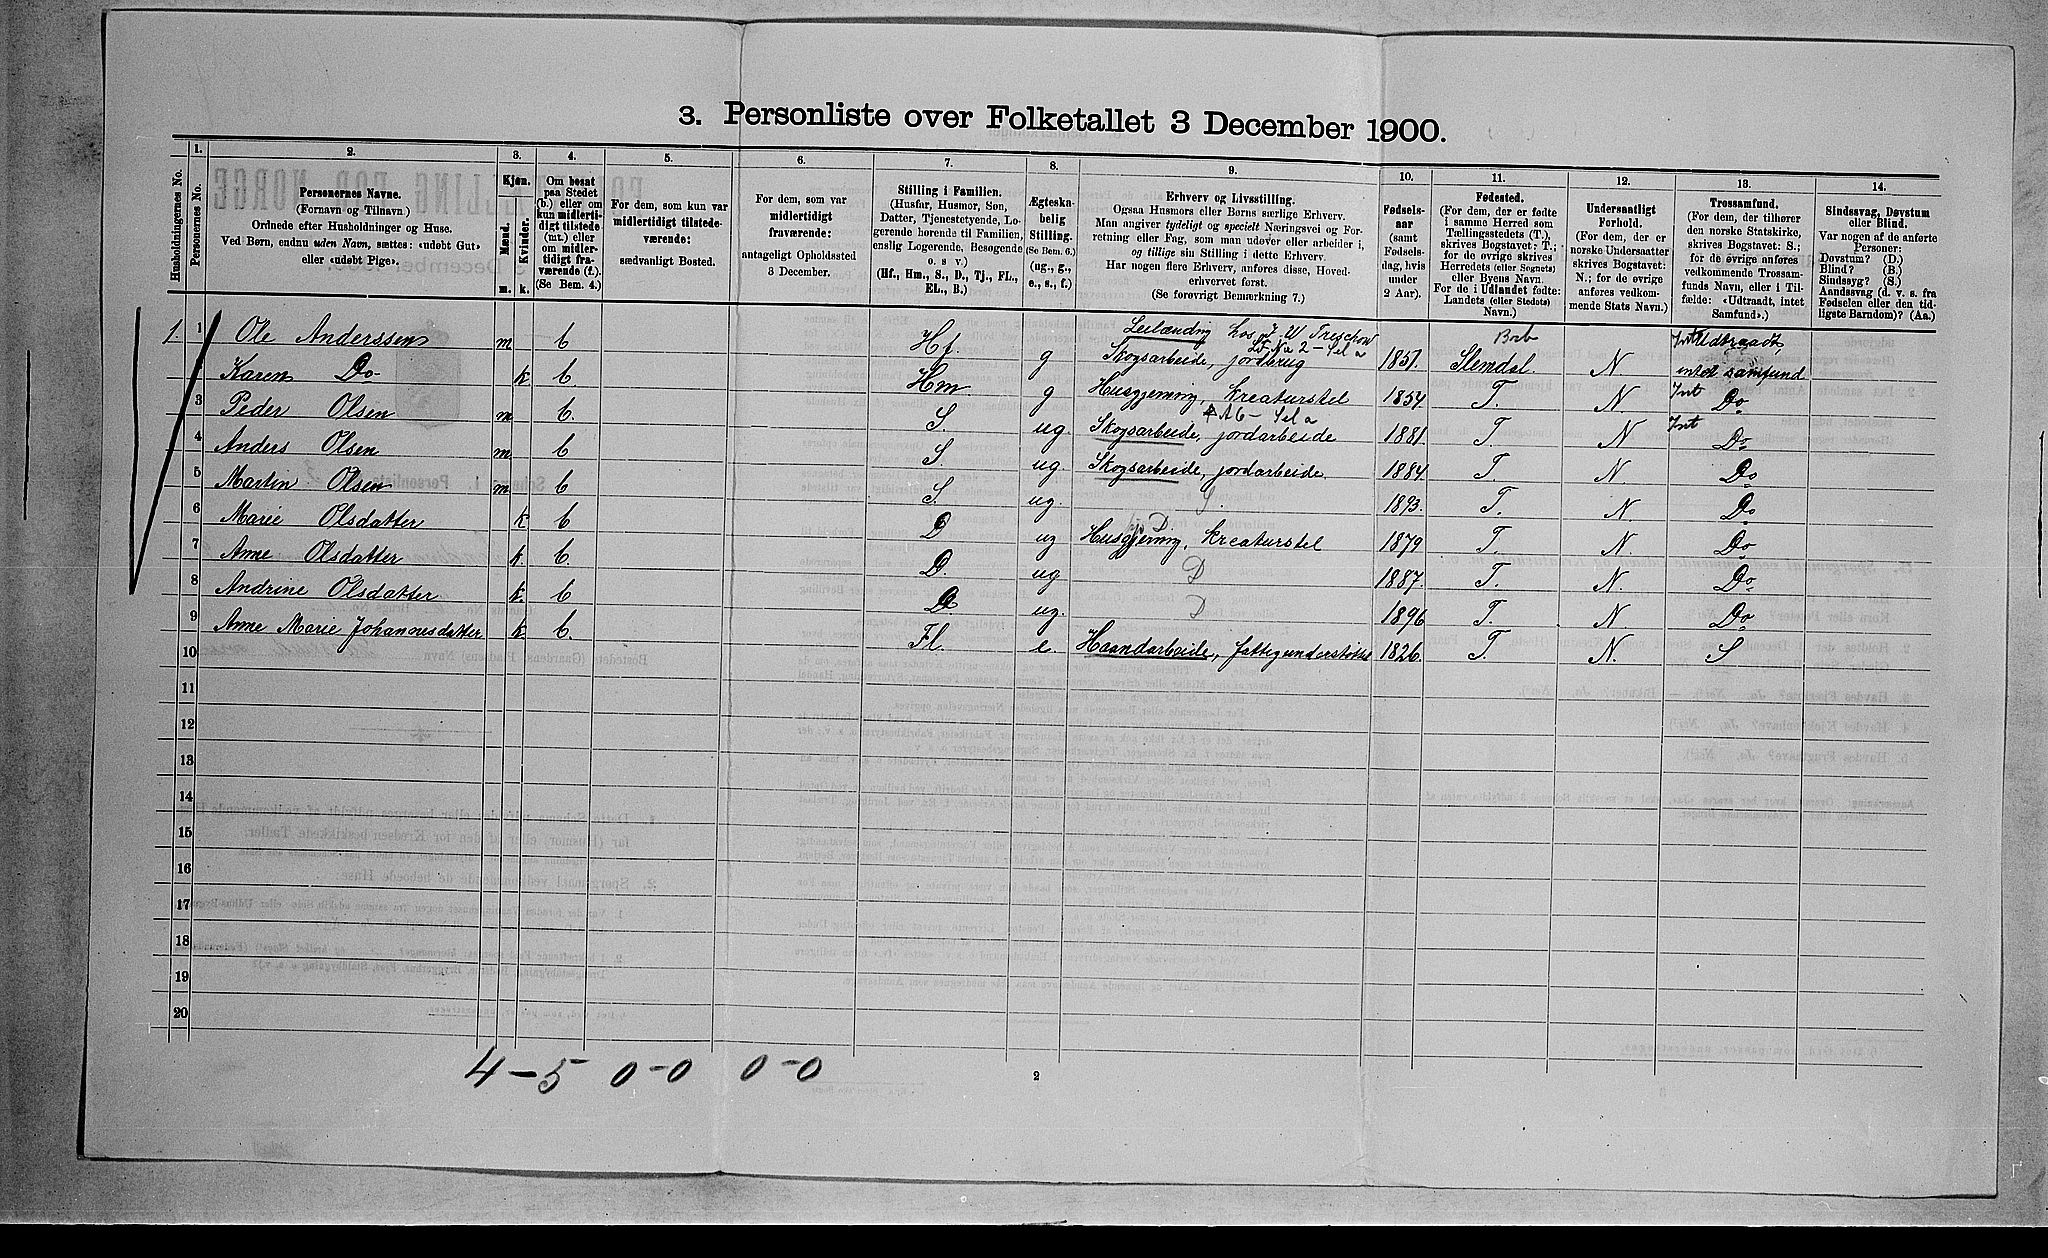 3. Personliste over Folketallet 3 December 1900.
Husholdningernes No.
1.
Personernes No.
2.
Personernes Navne.
(Fornavn og Tilnavn.)
Ordnede efter Husholdninger og Huse.
Ved Børn, endnu uden Navn, sættes: «udøbt Gut»
eller «udøbt Pige».
3.
Kjøn.
Mænd.
Kvinder.
m. k.
4.
Om bosat
paa Stedet
(b.) eller om
kun midlerti-
digt tilstede
(mt.) eller
om midler-
tidigt fra-
værende (f.).
(Se Bem. 4.)
5.
For dem, som kun var
midlertidigt tilstede-
værende:
sædvanligt Bosted.
6.
For dem, som var
midlertidigt
fraværende:
antageligt Opholdssted
3 December.
7.
Stilling i Familien.
(Husfar, Husmor, Søn,
Datter, Tjenestetyende, Lo-
gerende hørende til Familien,
enslig Logerende, Besøgende
o. s v.)
(Hf., Hm., S., D., Tj., FL.,
EL., B.)
8.
Ægteska-
belig
Stilling.
(Se Bem. 6.)
(ug., g.,
e., s., f.)
9.
Erhverv og Livsstilling.
Ogsaa Husmors eller Børns særlige Erhverv.
Man angiver tydeligt og specielt Næringsvei og For-
retning eller Fag, som man udøver eller arbeider i,
og tillige sin Stilling i dette Erhverv.
Har nogen flere Erhverv, anføres disse, Hoved-
erhvervet først.
(Se forøvrigt Bemærkning 7.)
10.
Fødsels-
aar
(samt
Fødsels-
dag, hvis
under
2 Aar).
11.
Fødested.
(For dem, der er fødte
i samme Herred som
Tællingsstedets (T.),
skrives Bogstavet: T.;
for de øvrige skrives
Herredets (eller Sognets)
eller Byens Navn.
For de i Udlandet fødte:
Landets (eller Stedets)
Navn.)
12.
Undersaatligt
Forhold.
(For dem, der er
norske Undersaatter
skrives Bogstavet:
N.; for de øvrige
anføres vedkom-
mende Stats Navn.)
13.
Trossamfund.
(For dem, der tilhører
den norske Statskirke,
skrives Bogstavet: S.;
for de øvrige anføres
vedkommende Trossam-
funds Navn, eller i Til-
fælde: «Udtraadt, intet
Samfund».)
14.
Sindssvag, Døvstum
eller Blind.
Var nogen af de anførte
Personer:
Døvstum? (D.)
Blind? (B.)
Sindssyg? (S.)
Aandssvag (d. v. s. fra
Fødselen eller den tid-
ligste Barndom)? (Aa.)
Leilænding hos
Treschow
1. 1 Ole Anderssen m b Hf. g Skogsarbeide, jordbrug 1851. Slemdal. N Udtraadt, intet samfund
Karen Do k b. Hm g Husgjerning, kreaturstel 1854 T. N Int Do
3 Peder Olsen m b. S ug. Skogsarbeide, jordarbeide 1881. T. N Int Do
4 Anders Olsen m b S. ug. Skogsarbeide, jordarbeide. 1884. T. N. Do
5 Martin Olsen m b S ug. S. 1893. T. N. Do
6 Marie Olsdatter k b D ug Husgjerning, kreaturstel 1879 T. N. Do
7 Anne Olsdatter k. b. D. ug D 1887. T. N. Do
8 Andrine Olsdatter k. b D. ug. D 1896 T. N. Do
9 Anne Marie Johannesdatter k b. Fl e. Haandarbeide, fattigunderstøttet 1826. T. N. S
10
11
12
13
14
15
16
17
18
19
20
4 – 5 0 – 0 0 – 0
2